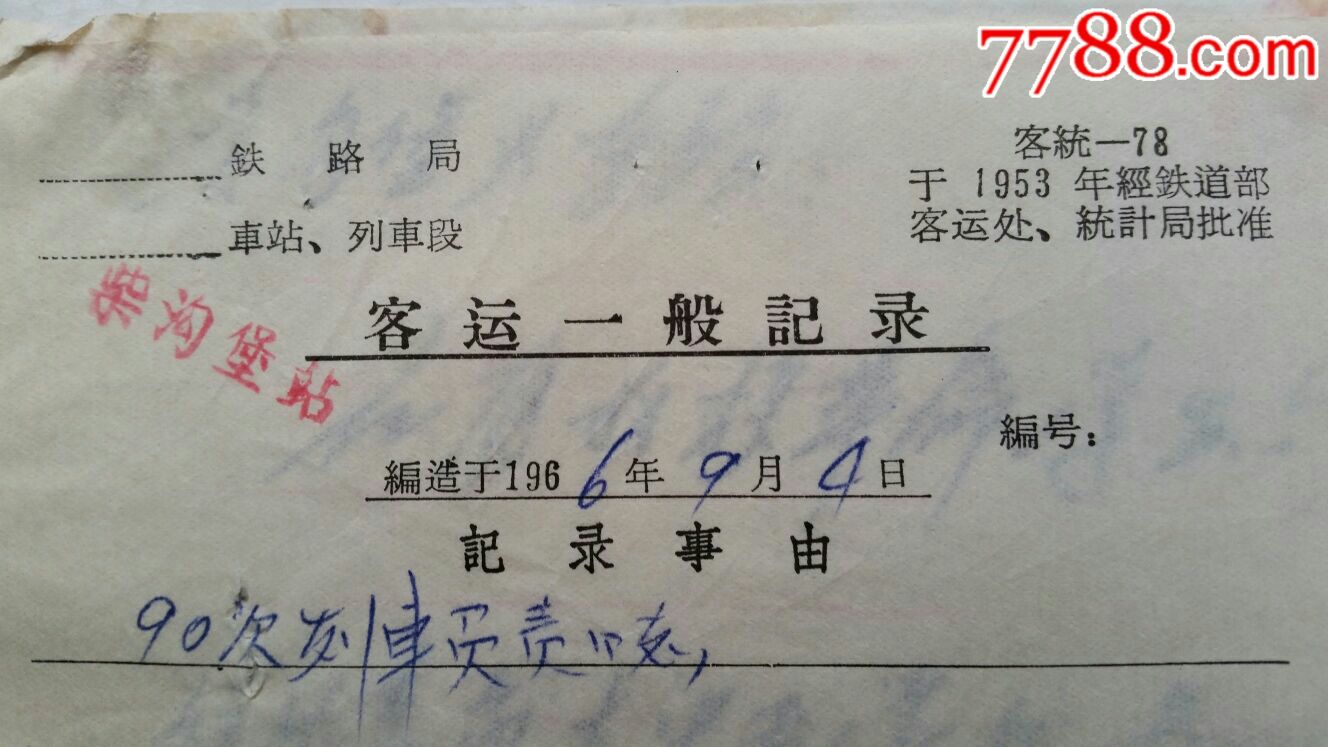 7788.com
鉄路局
客統—78
于1953年經鉄道部
車站、列車段
客运处、統計局批准
柴沟堡站
客运一般記录
編号:
編造于1966年9月4日
記录事由
90次列車员责